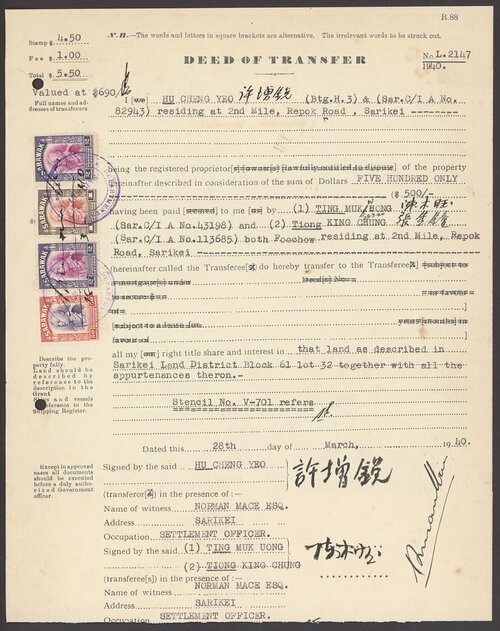 R.88
N.B.—The words and letters in square brackets are alternative. The irrelevant words to be struck out.
Stamp $ 4.50
Fee $ 1.00
Total $ 5.50
DEED OF TRANSFER
No L.2147
1940.
Valued at $690/
Full names and addresses of transferors
I [we] HU CHENG YEO 許增銳 (Btg.H.3) & (Sar.C/I A No.
82943) residing at 2nd Mile, Repok Road, Sarikei
being the registered proprietor[s] [owners] [lawfully entitled to dispose] of the property
hereinafter described in consideration of the sum of Dollars FIVE HUNDRED ONLY
($ 500/-
having been paid [secured] to me [us] by (1) TING MUK UONG
(Sar.C/I A No.43198) and (2) Tiong KING CHUNG
(Sar.C/I A No.113685) both Foochow residing at 2nd Mile, Repok
Road, Sarikei
(hereinafter called the Transferee[s]) do hereby transfer to the Transferee[s] [subject to
SARAWAK
SARAWAK
SARAWAK
SARAWAK
subject to a lease for
favour of
all my [our] right title share and interest in that land as described in
Sarikei Land District Block 61 lot 32 together with all the
appurtenances theron.-
Describe the property fully.
Land should be described by reference to the description in the Grant
and vessels
reference to the Shipping Register.
Stencil No. V-701 refers
Dated this 28th day of March, 1940.
Except in approved cases all documents should be executed before a duly authorized Government officer.
Signed by the said HU CHENG YEO
許增銳
(transferor[s]) in the presence of :—
Name of witness NORMAN MACE ESQ.
Address SARIKEI
Occupation SETTLEMENT OFFICER.
Signed by the said (1) TING MUK UONG
(2) TIONG KING CHUNG
(transferee[s]) in the presence of :—
Name of witness NORMAN MACE ESQ.
Address SARIKEI
Occupation SETTLEMENT OFFICER.